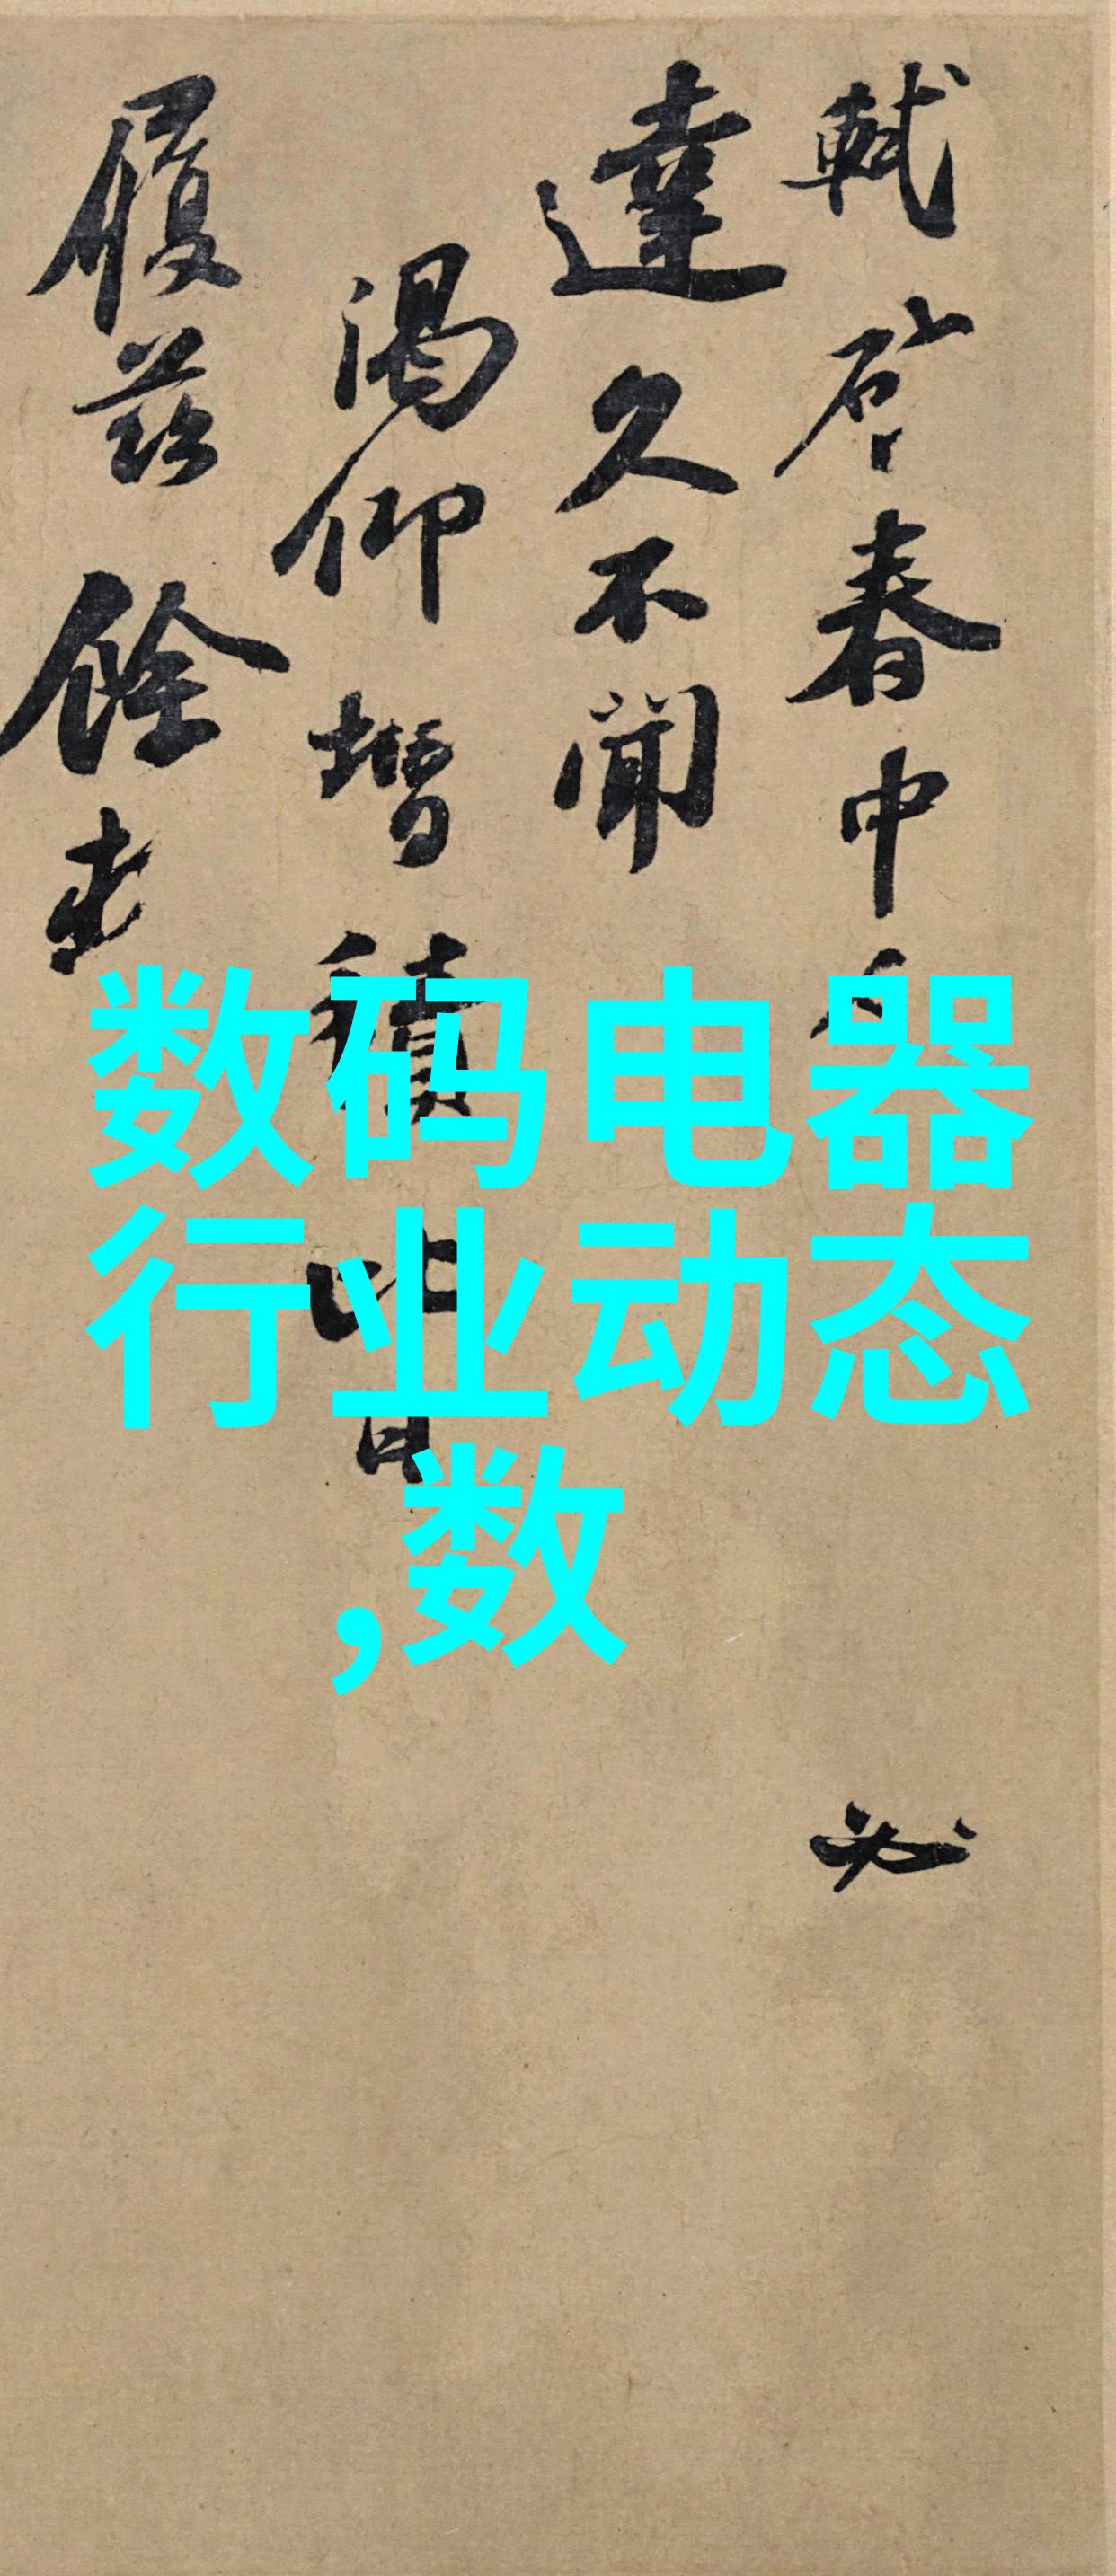 軾啓春中必
達久不聞
渴仰增積比日
履茲餘
数码电器
行业动态
,数